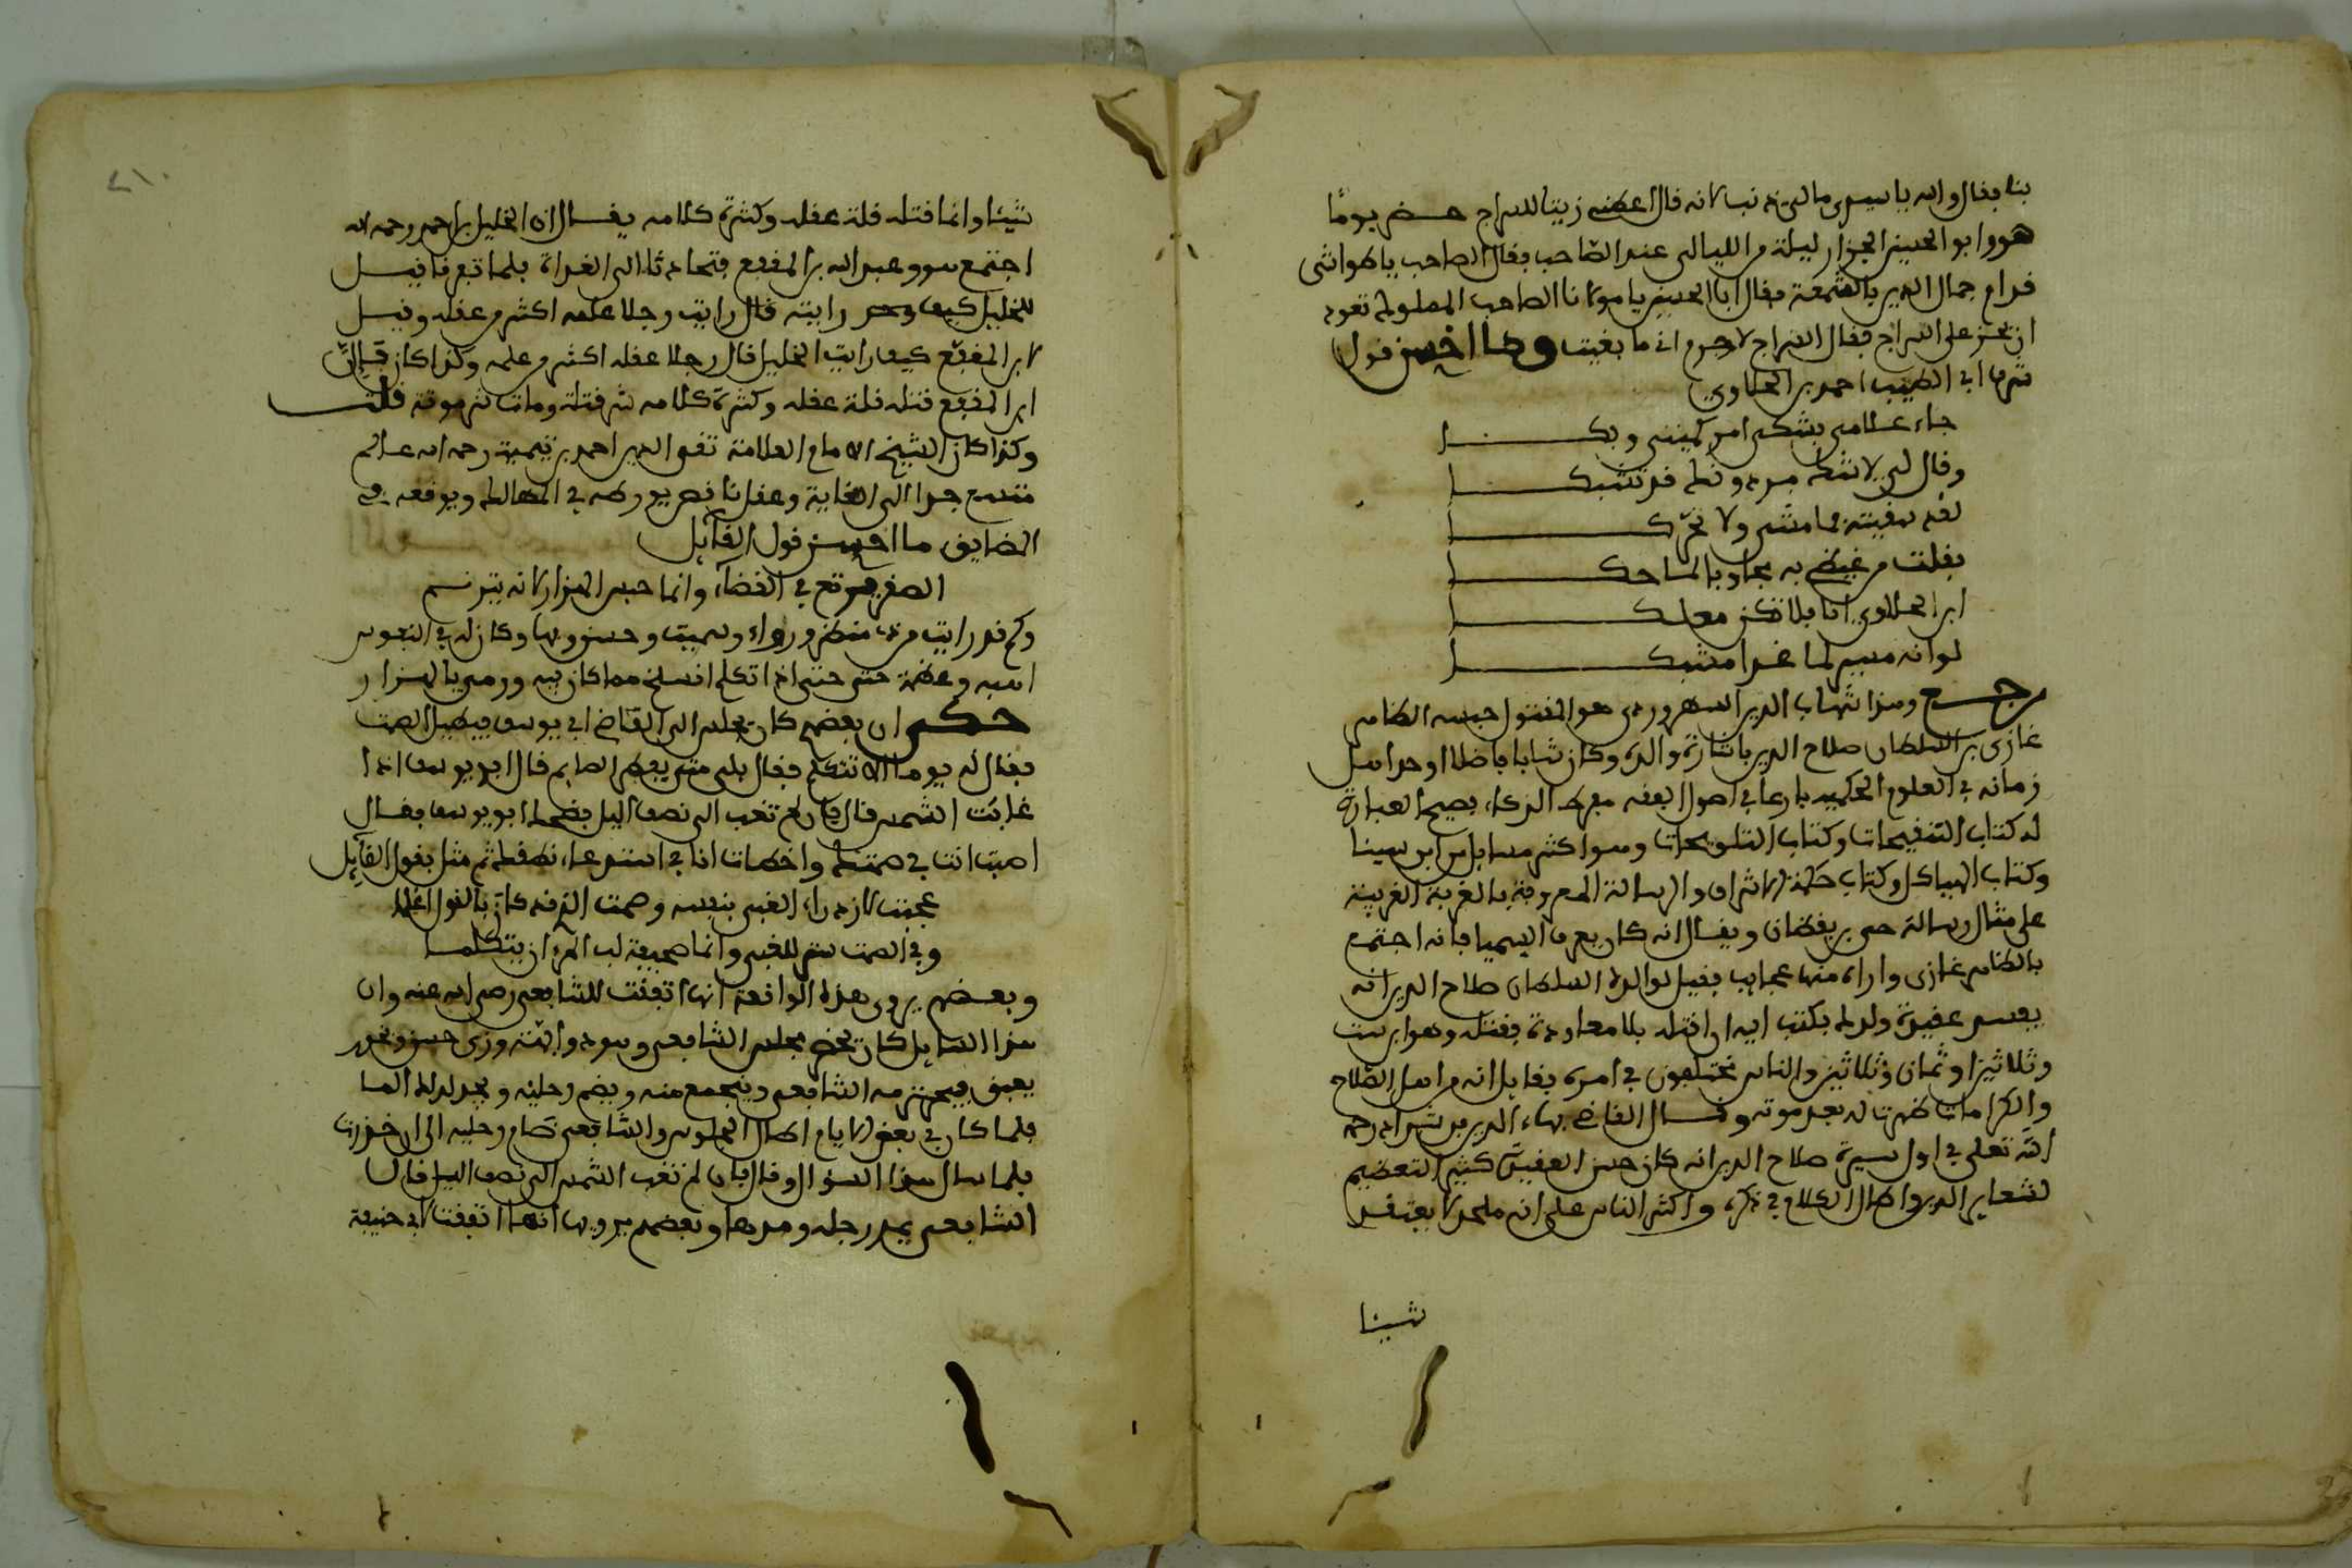 بنا فقال والله يا سيدى مالى ذنب لانه قال اعطنى زيتا للسراج حضر يوما
هو وابو الحسين الجزار ليلة من الليالى عند الصاحب فقال الصاحب يا طواشى
قدام جمال الدين بالشمعة فقال ابا الحسين يا مولانا الصاحب المملوك تعود
ان على السراج فقال السراج لا جرم انى ما بقيت وما احسن قول
شرف ابى الطيب احمد بن الحلاوي
جاء غلامى بشكى امر كميتى وبكا
وقال لى لا شك برذونك قد تشبكا
قد سقيته فما مشى ولا تحركا
فقلت من غيظى به مجاوبا لما حكى
ابن الحلاوي انا فلا تكن معلكا
لو انه مسير لما غدا مشبكا
رجع وهذا شهاب الدين السهروردى هو المقتول حبسه الظاهر
غازى بن السلطان صلاح الدين باشارة والده وكان شابا فاضلا اوحد اهل
زمانه في العلوم الحكمية بارعا في اصول الفقه مفرط الذكاء فصيح العبارة
له كتاب التنقيحات وكتاب التلويحات وهو اكثر مسايل من ابن سينا
وكتاب الهياكل وكتاب حكمة الاشراق والرسالة المعروفة بالغربة الغريبة
على مثال رسالة حى بن يقظان ويقال انه كان يعرف السيميا فانه اجتمع
بالظاهر غازى واراه منها عجايب فقيل لوالده السلطان صلاح الدين انه
يفسد عقيدة ولدك فكتب اليه ان اقتله بلا معاودة فقتله وهو ابن ست
وثلاثين او ثمان وثلاثين والناس مختلفون في امره فقايل انه من اهل الصلاح
والكرامات ظهرت له بعد موته وقال القاضى بهاء الدين بن شداد رحمه
الله تعلى في اول سيرة صلاح الدين انه كان حسن العقيدة كثير التعظيم
لشعاير الدين واطال الكلام في ذكره واكثر الناس على انه ملحد لا يعتقد
شيئا
٢١٠
شيئا وانما قتله قلة عقله وكثرة كلامه يقال ان الخليل بن احمد رحمه الله
اجتمع هو وعبد الله بن المقفع فتحادثا الى الغداة فلما تفرقا قيل
للخليل كيف رايته قال رايت رجلا علمه اكثر من عقله وقيل
لابن المقفع كيف رايت الخليل قال رجلا عقله اكثر من علمه وكذا كان فان
ابن المقفع قتله قلة عقله وكثرة كلامه شر قتلة ومات شر موتة قلت
وكذا كان الشيخ الامام العلامة تقى الدين احمد بن تيمية رحمه الله عالم
متسع جدا الى الغاية وعقل ناقص يورطه في المهالك ويوقعه في
المضايق ما احسن قول القايل
الصقر يرتع في الفضاء وانما حبس الهزار لانه يترنم
وكم قد رايت من ذى منظر ورواء وسمت وحسن وبها وكان له في النفوس
ابهة وعظمة حتى حتى اذا تكلم انسلخ مما كان فيه ورمى بالهزار
حكى ان بعضهم كان يجلس الى القاضى ابى يوسف فيطيل الصمت
فقال له يوما الا تتكلم فقال بلى متى يفطر الصايم قال ابو يوسف اذا
غابت الشمس قال فان لم تغب الى نصف اليل فضحك ابو يوسف فقال
اصبت انت في صمتك واخطات انا في استدعاء نطقك ثم مثل بقول القايل
عجبت لازراء الغبى بنفسه وصمت الذى قد كان بالقول اعلما
وفي الصمت ستر للغبى وانما صحيفة لب المرء ان يتكلما
وبعضهم يروى هذه الواقعة انها اتفقت للشافعى رضى الله عنه وان
هذا السايل كان يحضر مجلس الشافعى وهو ذو ابهة وزى حسن
فيحترمه الشافعى ويجمع منه ويضم رجليه ويجد لذلك الما
فلما كان في بعض الايام اطال الجلوس والشافعى ضام رجليه الى ان خدرت
فلما سال هذا السؤال وقال فان لم تغب الشمس الى نصف اليل قال
الشافعى يمد رجله ومدها وبعضهم يرويها انها اتفقت لابى حنيفة